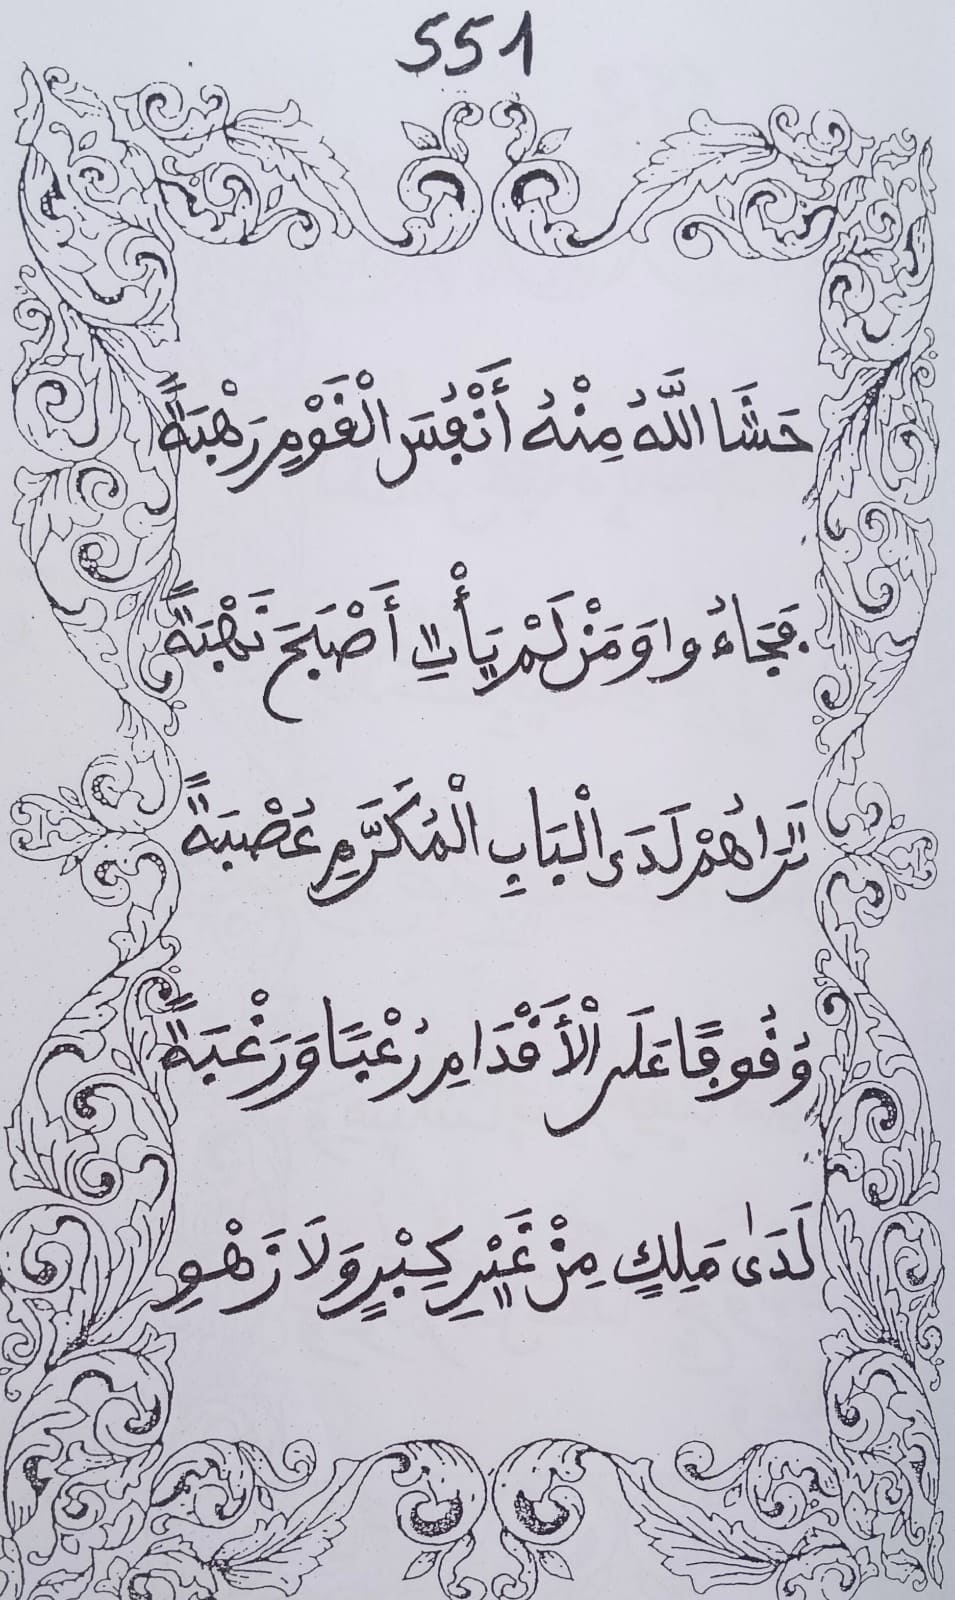 551
حَشَا اللَّهُ مِنْهُ أَنْفُسَ الْقَوْمِ رَهْبَةً
فَجَاءُوا وَمَنْ لَمْ يَأْتِ أَصْبَحَ نَهْبَةً
تَرَاهُمْ لَدَى الْبَابِ الْمُكَرَّمِ عُصْبَةً
وُقُوفًا عَلَى الْأَقْدَامِ رُعْبًا وَرَغْبَةً
لَدَىٰ مَلِكٍ مِنْ غَيْرِ كِبْرٍ وَلَا زَهْوِ